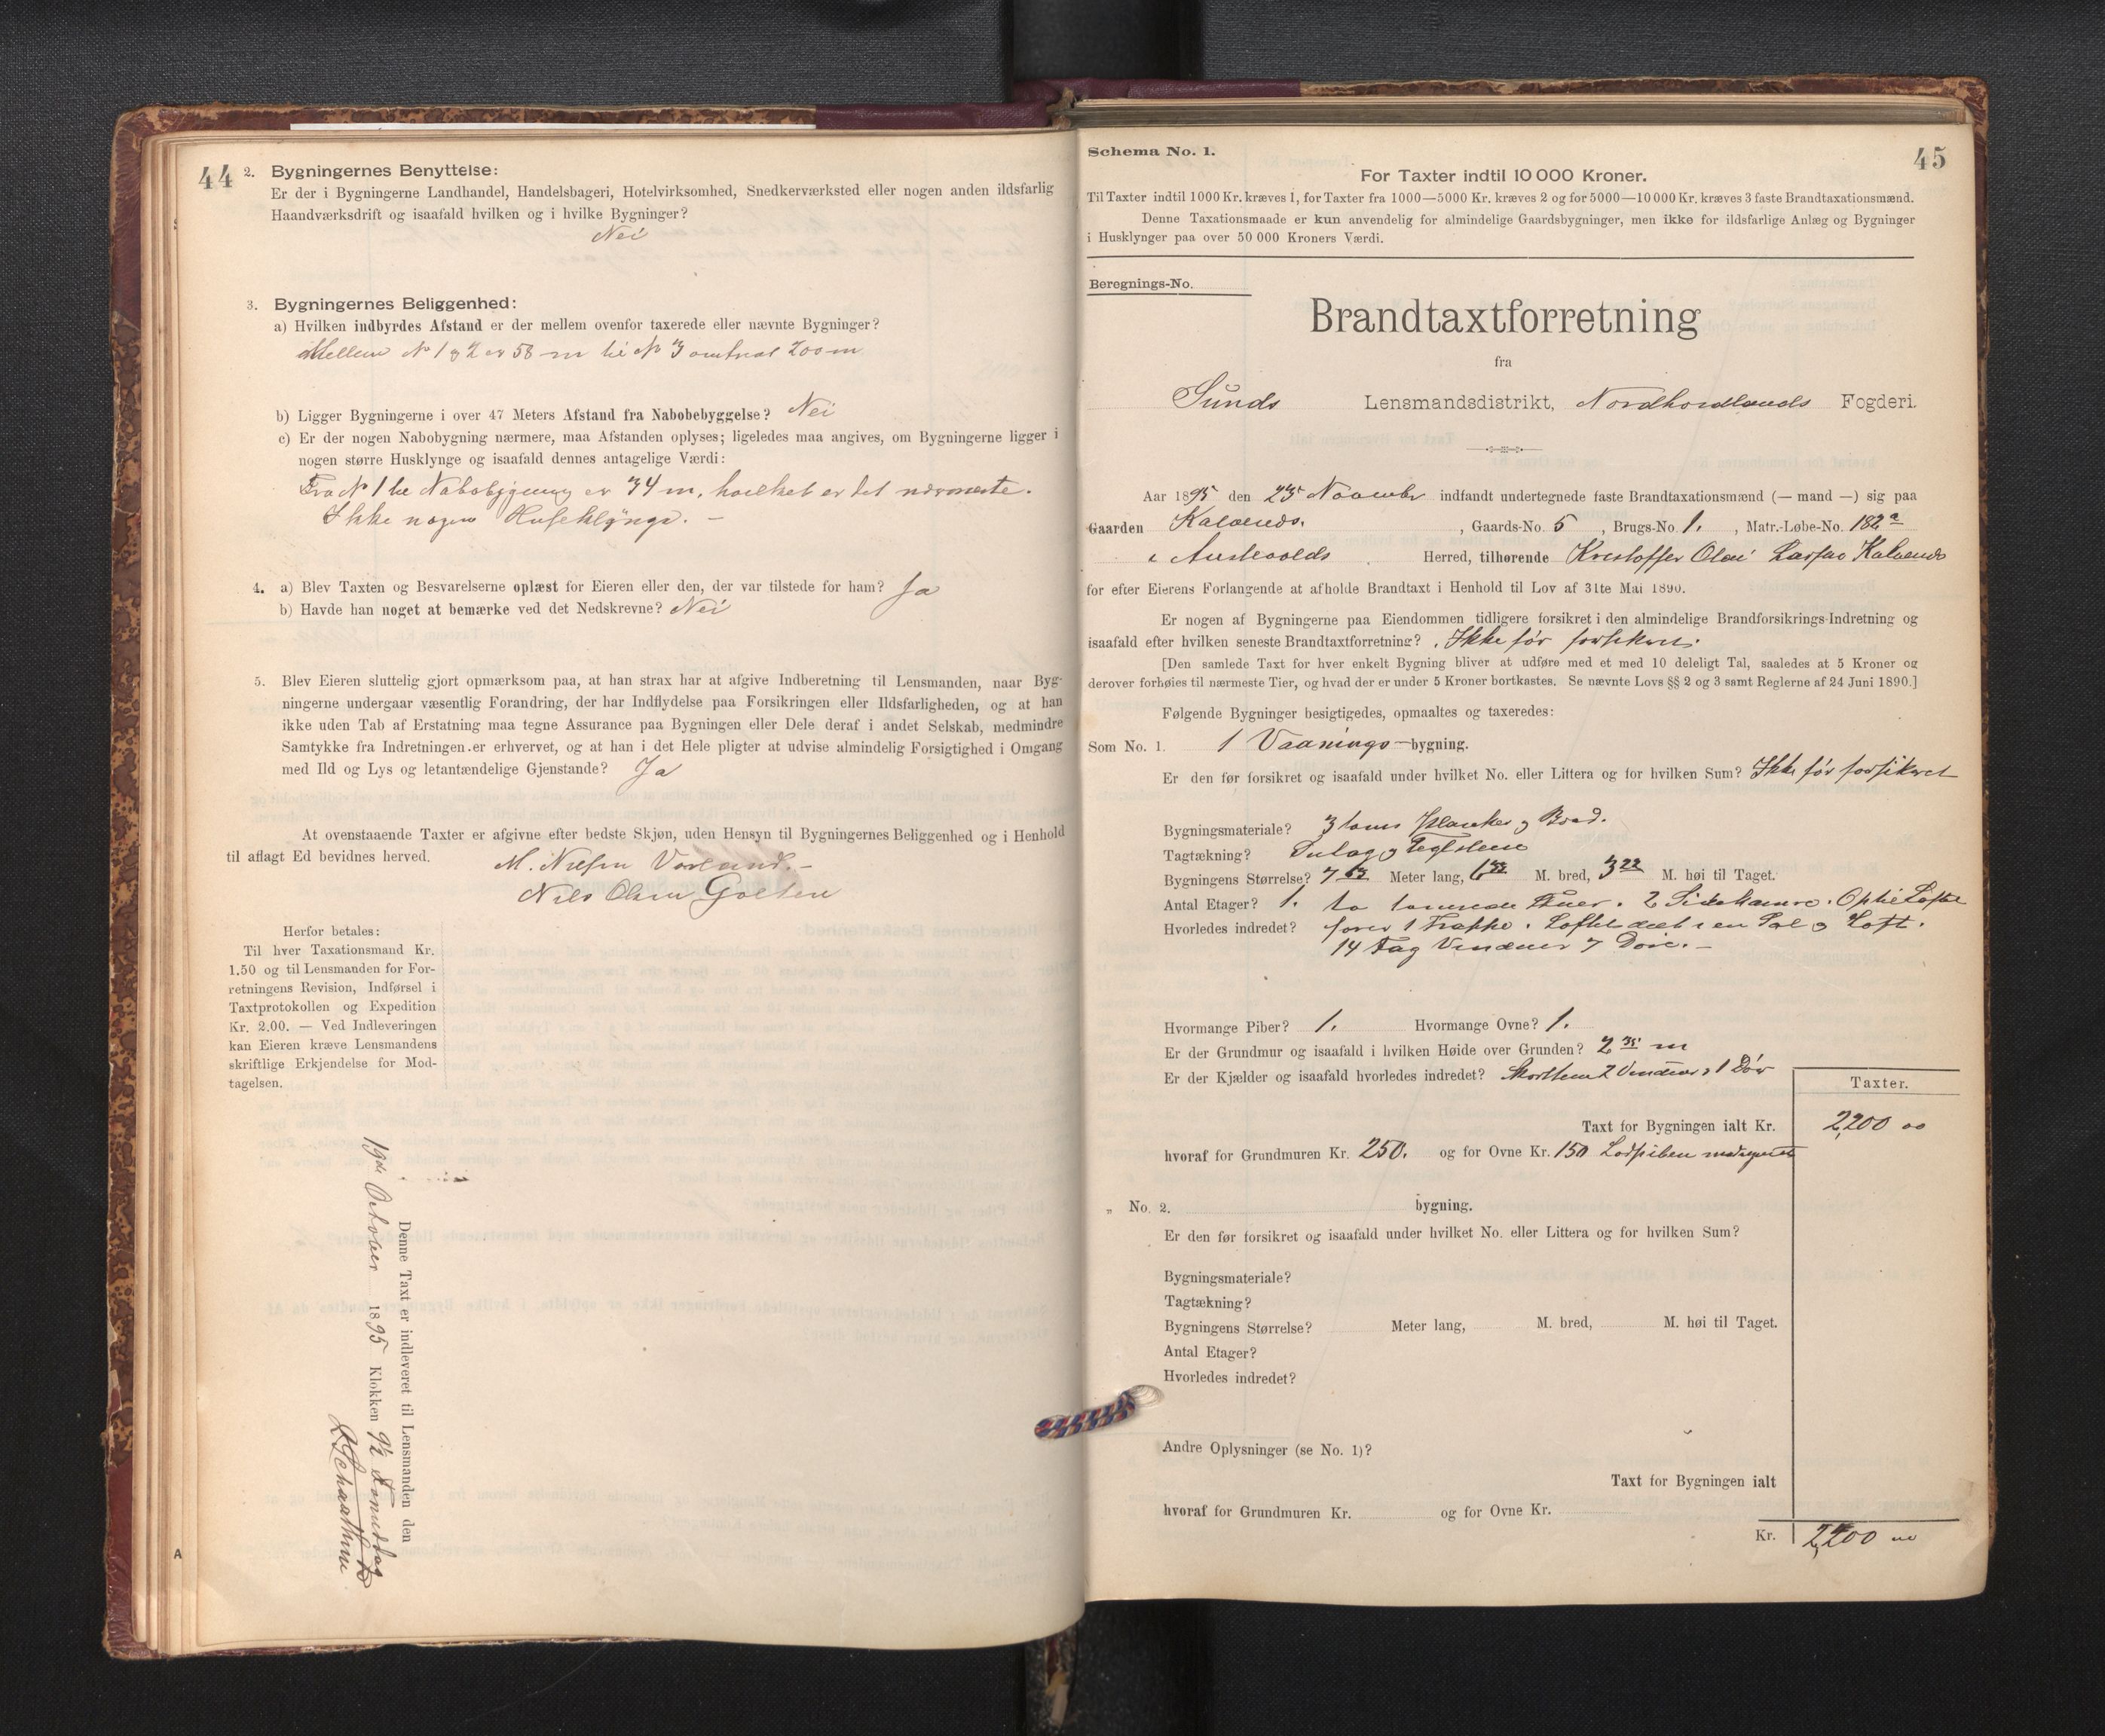 44
2. Bygningernes Benyttelse:
Er der i Bygningerne Landhandel, Handelsbageri, Hotelvirksomhed, Snedkerværksted eller nogen anden ildsfarlig
Haandværksdrift og isaafald hvilken og i hvilke Bygninger?
Nei
3. Bygningernes Beliggenhed:
a) Hvilken indbyrdes Afstand er der mellem ovenfor taxerede eller nævnte Bygninger?
Mellem No 1 og 2 er 58 m til No 3 omtrent 200 m
b) Ligger Bygningerne i over 47 Meters Afstand fra Nabobebyggelse? Nei
c) Er der nogen Nabobygning nærmere, maa Afstanden oplyses; ligeledes maa angives, om Bygningerne ligger i
nogen større Husklynge og isaafald dennes antagelige Værdi:
Fra No 1 til Nabobygning er 34 m, hvilket er det nærmeste.
Ikke nogen Husklynge. —
4. a) Blev Taxten og Besvarelserne oplæst for Eieren eller den, der var tilstede for ham? Ja
b) Havde han noget at bemærke ved det Nedskrevne? Nei
5. Blev Eieren sluttelig gjort opmærksom paa, at han strax har at afgive Indberetning til Lensmanden, naar Byg-
ningerne undergaar væsentlig Forandring, der har Indflydelse paa Forsikringen eller Ildsfarligheden, og at han
ikke uden Tab af Erstatning maa tegne Assurance paa Bygningen eller Dele deraf i andet Selskab, medmindre
Samtykke fra Indretningen er erhvervet, og at han i det Hele pligter at udvise almindelig Forsigtighed i Omgang
med Ild og Lys og letantændelige Gjenstande? Ja
At ovenstaaende Taxter er afgivne efter bedste Skjøn, uden Hensyn til Bygningernes Beliggenhed og i Henhold
til aflagt Ed bevidnes herved.
M. Nilsen Vorland. —
Nils Olsen Golten
Herfor betales:
Til hver Taxationsmand Kr.
1,50 og til Lensmanden for For-
retningens Revision, Indførsel i
Taxtprotokollen og Expedition
Kr. 2.00. — Ved Indleveringen
kan Eieren kræve Lensmandens
skriftlige Erkjendelse for Mod-
tagelsen.
Denne Taxt er indleveret til Lensmanden den
19de October 1895 Klokken 9½ Formiddag
A
45
Schema No. 1.
For Taxter indtil 10 000 Kroner.
Til Taxter indtil 1000 Kr. kræves 1, for Taxter fra 1000—5000 Kr. kræves 2 og for 5000—10000 Kr. kræves 3 faste Brandtaxationsmænd.
Denne Taxationsmaade er kun anvendelig for almindelige Gaardsbygninger, men ikke for ildsfarlige Anlæg og Bygninger
i Husklynger paa over 50 000 Kroners Værdi.
Beregnings-No.
Brandtaxtforretning
fra
Sunds Lensmandsdistrikt, Nordhordlands Fogderi.
Aar 1895 den 25 November indfandt undertegnede faste Brandtaxationsmænd (— mand —) sig paa
Gaarden Kalvenes. , Gaards-No. 5 , Brugs-No. 1. , Matr.-Løbe-No. 182a
i Austevolds Herred, tilhørende Kristoffer Olai Larsen Kalvenes
for efter Eierens Forlangende at afholde Brandtaxt i Henhold til Lov af 31te Mai 1890.
Er nogen af Bygningerne paa Eiendommen tidligere forsikret i den almindelige Brandforsikrings-Indretning og
isaafald efter hvilken seneste Brandtaxtforretning? Ikke før forsikret.
[Den samlede Taxt for hver enkelt Bygning bliver at udføre med et med 10 deleligt Tal, saaledes at 5 Kroner og
derover forhøies til nærmeste Tier, og hvad der er under 5 Kroner bortkastes. Se nævnte Lovs §§ 2 og 3 samt Reglerne af 24 Juni 1890.]
Følgende Bygninger besigtigedes, opmaaltes og taxeredes:
Som No. 1. 1 Vaanings-bygning.
Er den før forsikret og isaafald under hvilket No. eller Littera og for hvilken Sum? Ikke før forsikret
Bygningsmateriale? 3 toms Planker og Bord.
Tagtækning? Sutag og Teglstene
Bygningens Størrelse? 7 Meter lang, 6 M. bred, 3 22 M. høi til Taget.
Antal Etager? 1. to tømrede Stuer. 2 Sidekamre. Op til Loftet
Hvorledes indredet? fører 1 Trappe. Loftet delt i en Sal og Loft.
14 Fag Vinduer 7 Døre. —
Hvormange Piber? 1. Hvormange Ovne? 1.
Er der Grundmur og isaafald i hvilken Høide over Grunden? 2 35 m
Er der Kjælder og isaafald hvorledes indredet? 2 Vinduer og 1 Dør
Taxter.
Taxt for Bygningen ialt Kr. 2,200 00
hvoraf for Grundmuren Kr. 250. og for Ovne Kr. 150 Lodpiben medregnet
„ No. 2. bygning.
Er den før forsikret og isaafald under hvilket No. eller Littera og for hvilken Sum?
Bygningsmateriale?
Tagtækning?
Bygningens Størrelse? Meter lang, M. bred, M. høi til Taget.
Antal Etager?
Hvorledes indredet?
Andre Oplysninger (se No. 1)?
Taxt for Bygningen ialt
hvoraf for Grundmuren Kr. og for Ovne Kr.
Kr. 2,200 00